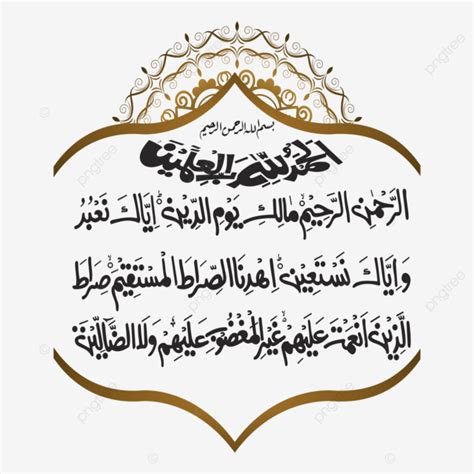 بسم الله الرحمن الرحيم
الحمد لله رب العلمين
الرحمن الرحيم مالك يوم الدين إياك نعبد
وإياك نستعين اهدنا الصراط المستقيم صراط
الذين أنعمت عليهم غير المغضوب عليهم ولا الضالين
pngtree